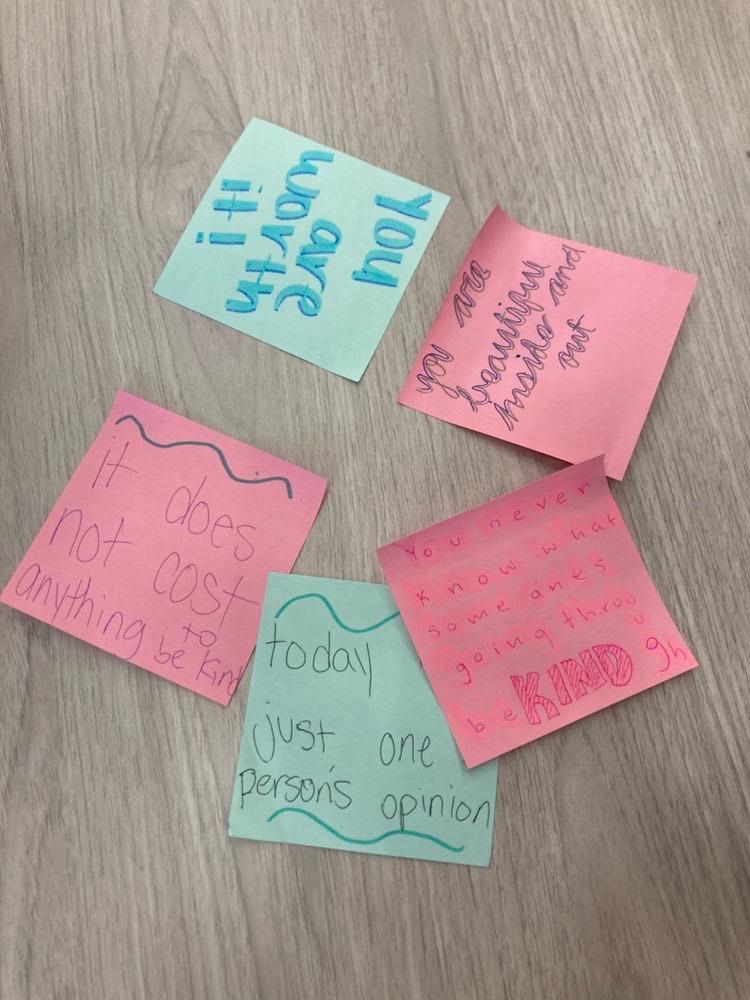 you
are
worth
it!
you are
beautiful
inside and
out
it does
not cost
anything to
be kind
You never
know what
someones
going throu
gh
be KIND
today
just one
person's opinion